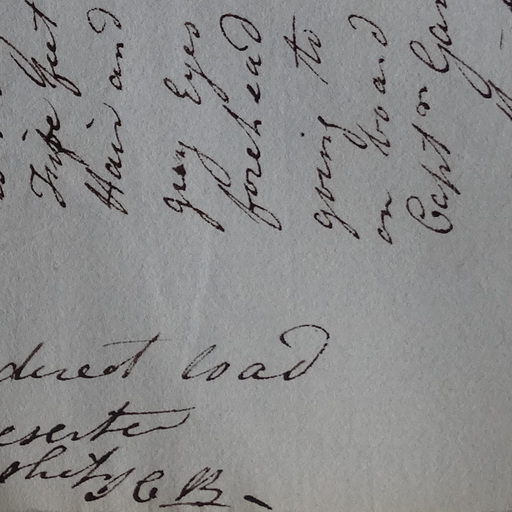 Five feet
Hair and
gray Eyes
forehead
going to
on board
Capt n Gar
direct load
eserter